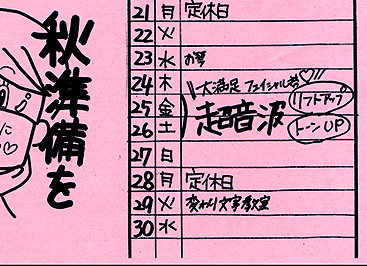 秋準備を
21 月 定休日
22 火
23 水 お琴
24 木
25 金
26 土
大満足 フェイシャル🎶♡
超音波
リフトアップ
トーンUP
27 日
28 月 定休日
29 火 変わり文字教室
30 水
に